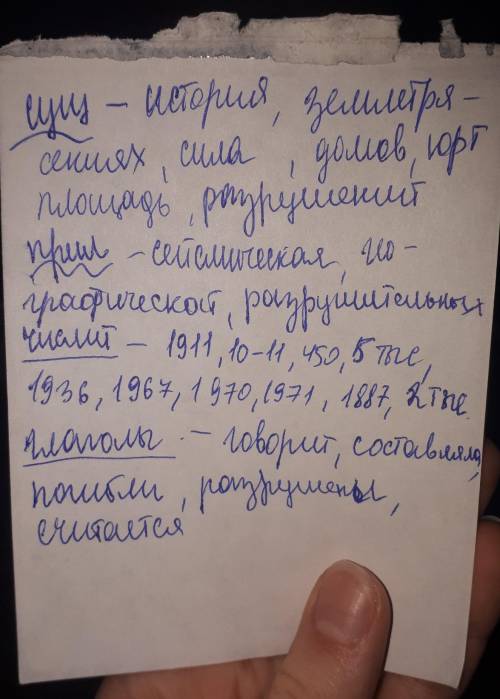 сущ – история, землетря-
сениях, сила, домов, юрт
площадь, разрушений
прил – сейсмическая, гео-
графической, разрушительных
числит – 1911, 10-11, 450, 5 тыс,
1936, 1967, 1970, 1971, 1887, 2 тыс
глаголы – говорит, составляла,
погибли, разрушены,
считается